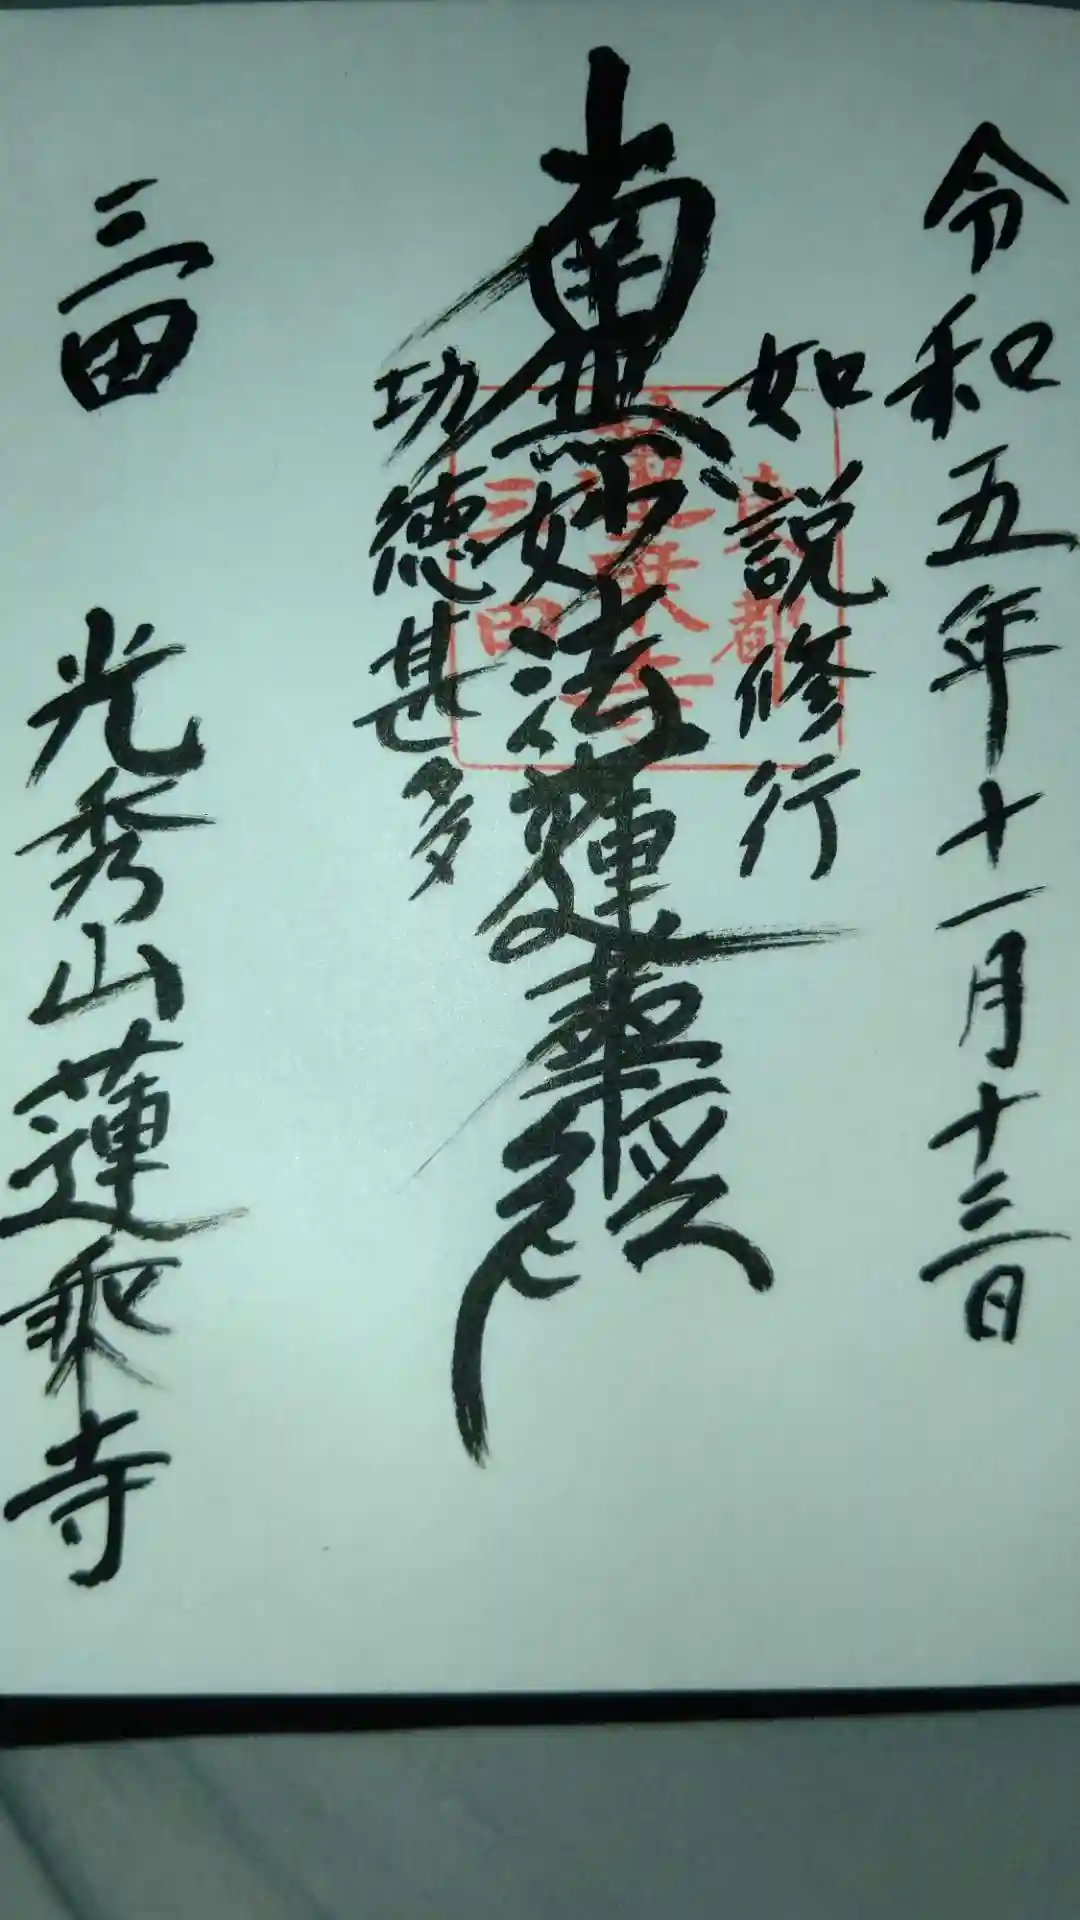 令和五年十一月十三日
如説修行
南無妙法蓮華経
功徳甚多
三田 光秀山蓮乗寺
東都
蓮乗寺
三田